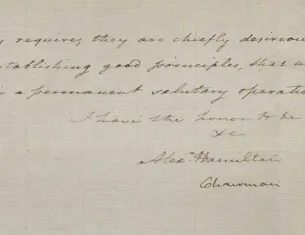 requires, they are chiefly desireous
establishing good principles, that
a permanent salutary operation
I have the honor to be
&c
Alexr. Hamilton
Chairman